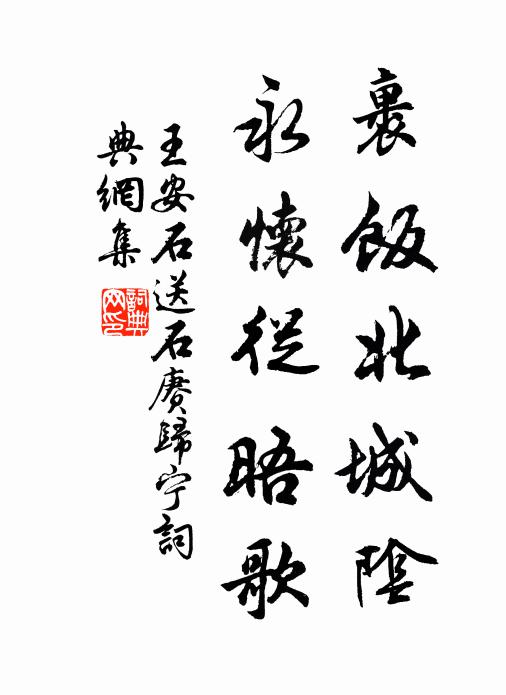 裹飯北城陰
永懷從晤歌
王安石送石賡歸宁詞
典網集
詞典網印